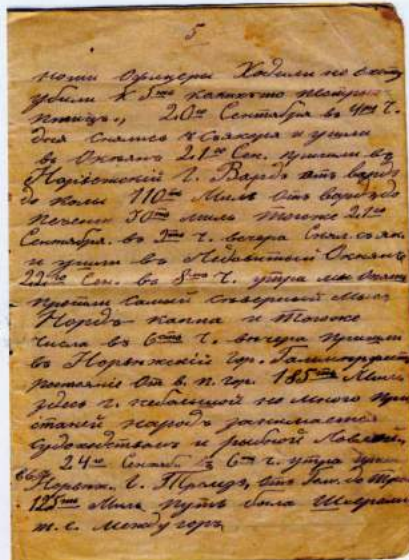 5
наши офицеры Ходили на охоту
убили 5ть какихъто пестрыхъ
птицъ, 20го Сентября въ 4ть ч.
дня снялись съ якоря и ушли
въ Океанъ 21го Сен. пришли въ
Норвежскій Г. Вардъ отъ вардъ
до колы 110 Миль отъ вардъ до
Печенги 50 миль Тогоже 21го
Сентября. въ ч. вечера Снял. съ як.
и ушли въ Ледовитый Океанъ
22го Сен. въ 8мь ч. утра
прошли самый северный мысъ
Нордъ каппъ и Тогоже
числа въ 6ть ч. вечера пришли
въ Норвежскій гор. Гаммерфестъ
растояніе отъ в. п. гор. 185ть Миль
здесь г. небольшой но много при
станей народъ занимается
судоходствомъ и рыбной Ловлей,
24го Сентяб. въ 6ть ч. утра
въ Норвеж. г. Тромзъ, отъ Гам. до Тром.
125ть Миль путь былъ Шхерами
т. е. между горъ